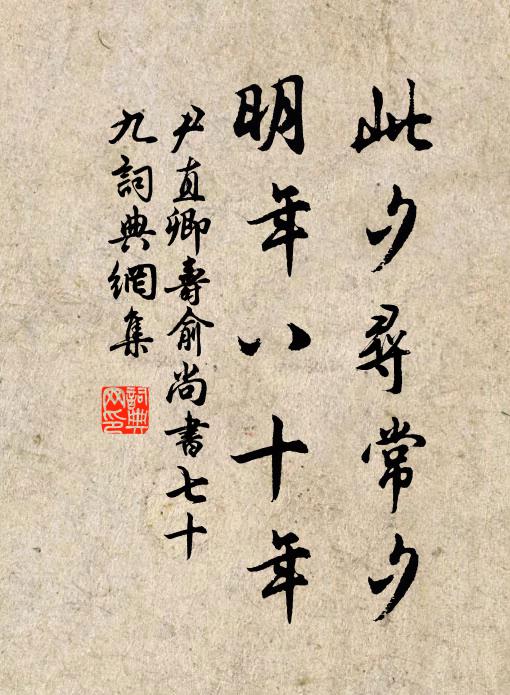 此夕尋常夕
明年八十年
尹直卿壽俞尚書七十
九詞典網集
詞典
网印